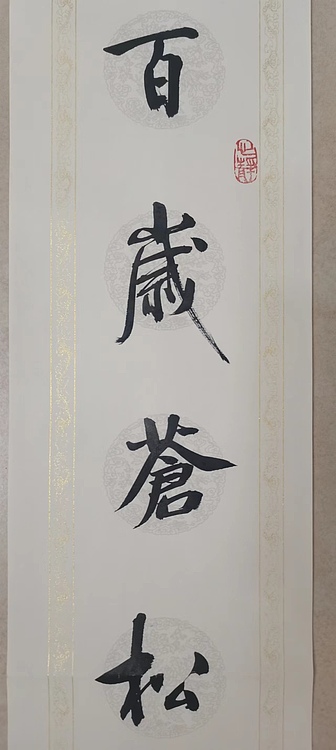 百歲蒼松